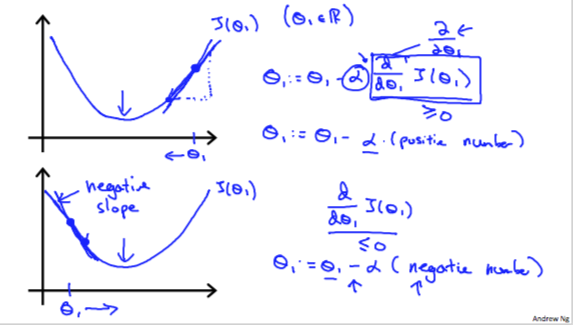 J(θ₁) (θ₁ ∈ ℝ)
∂/∂θ₁
θ₁ := θ₁ - α d/dθ₁ J(θ₁)
≥ 0
θ₁ := θ₁ - α · (positive number)
← θ₁
negative
slope
J(θ₁)
d/dθ₁ J(θ₁)
≤ 0
θ₁ := θ₁ - α (negative number)
θ₁ →
Andrew Ng